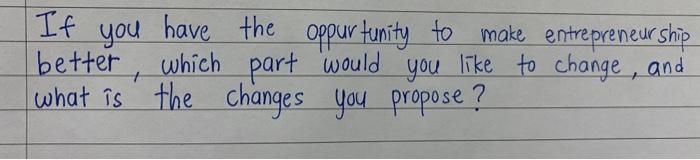 If you have the oppurtunity to make entrepreneurship
better, which part would you like to change, and
what is the changes you propose?